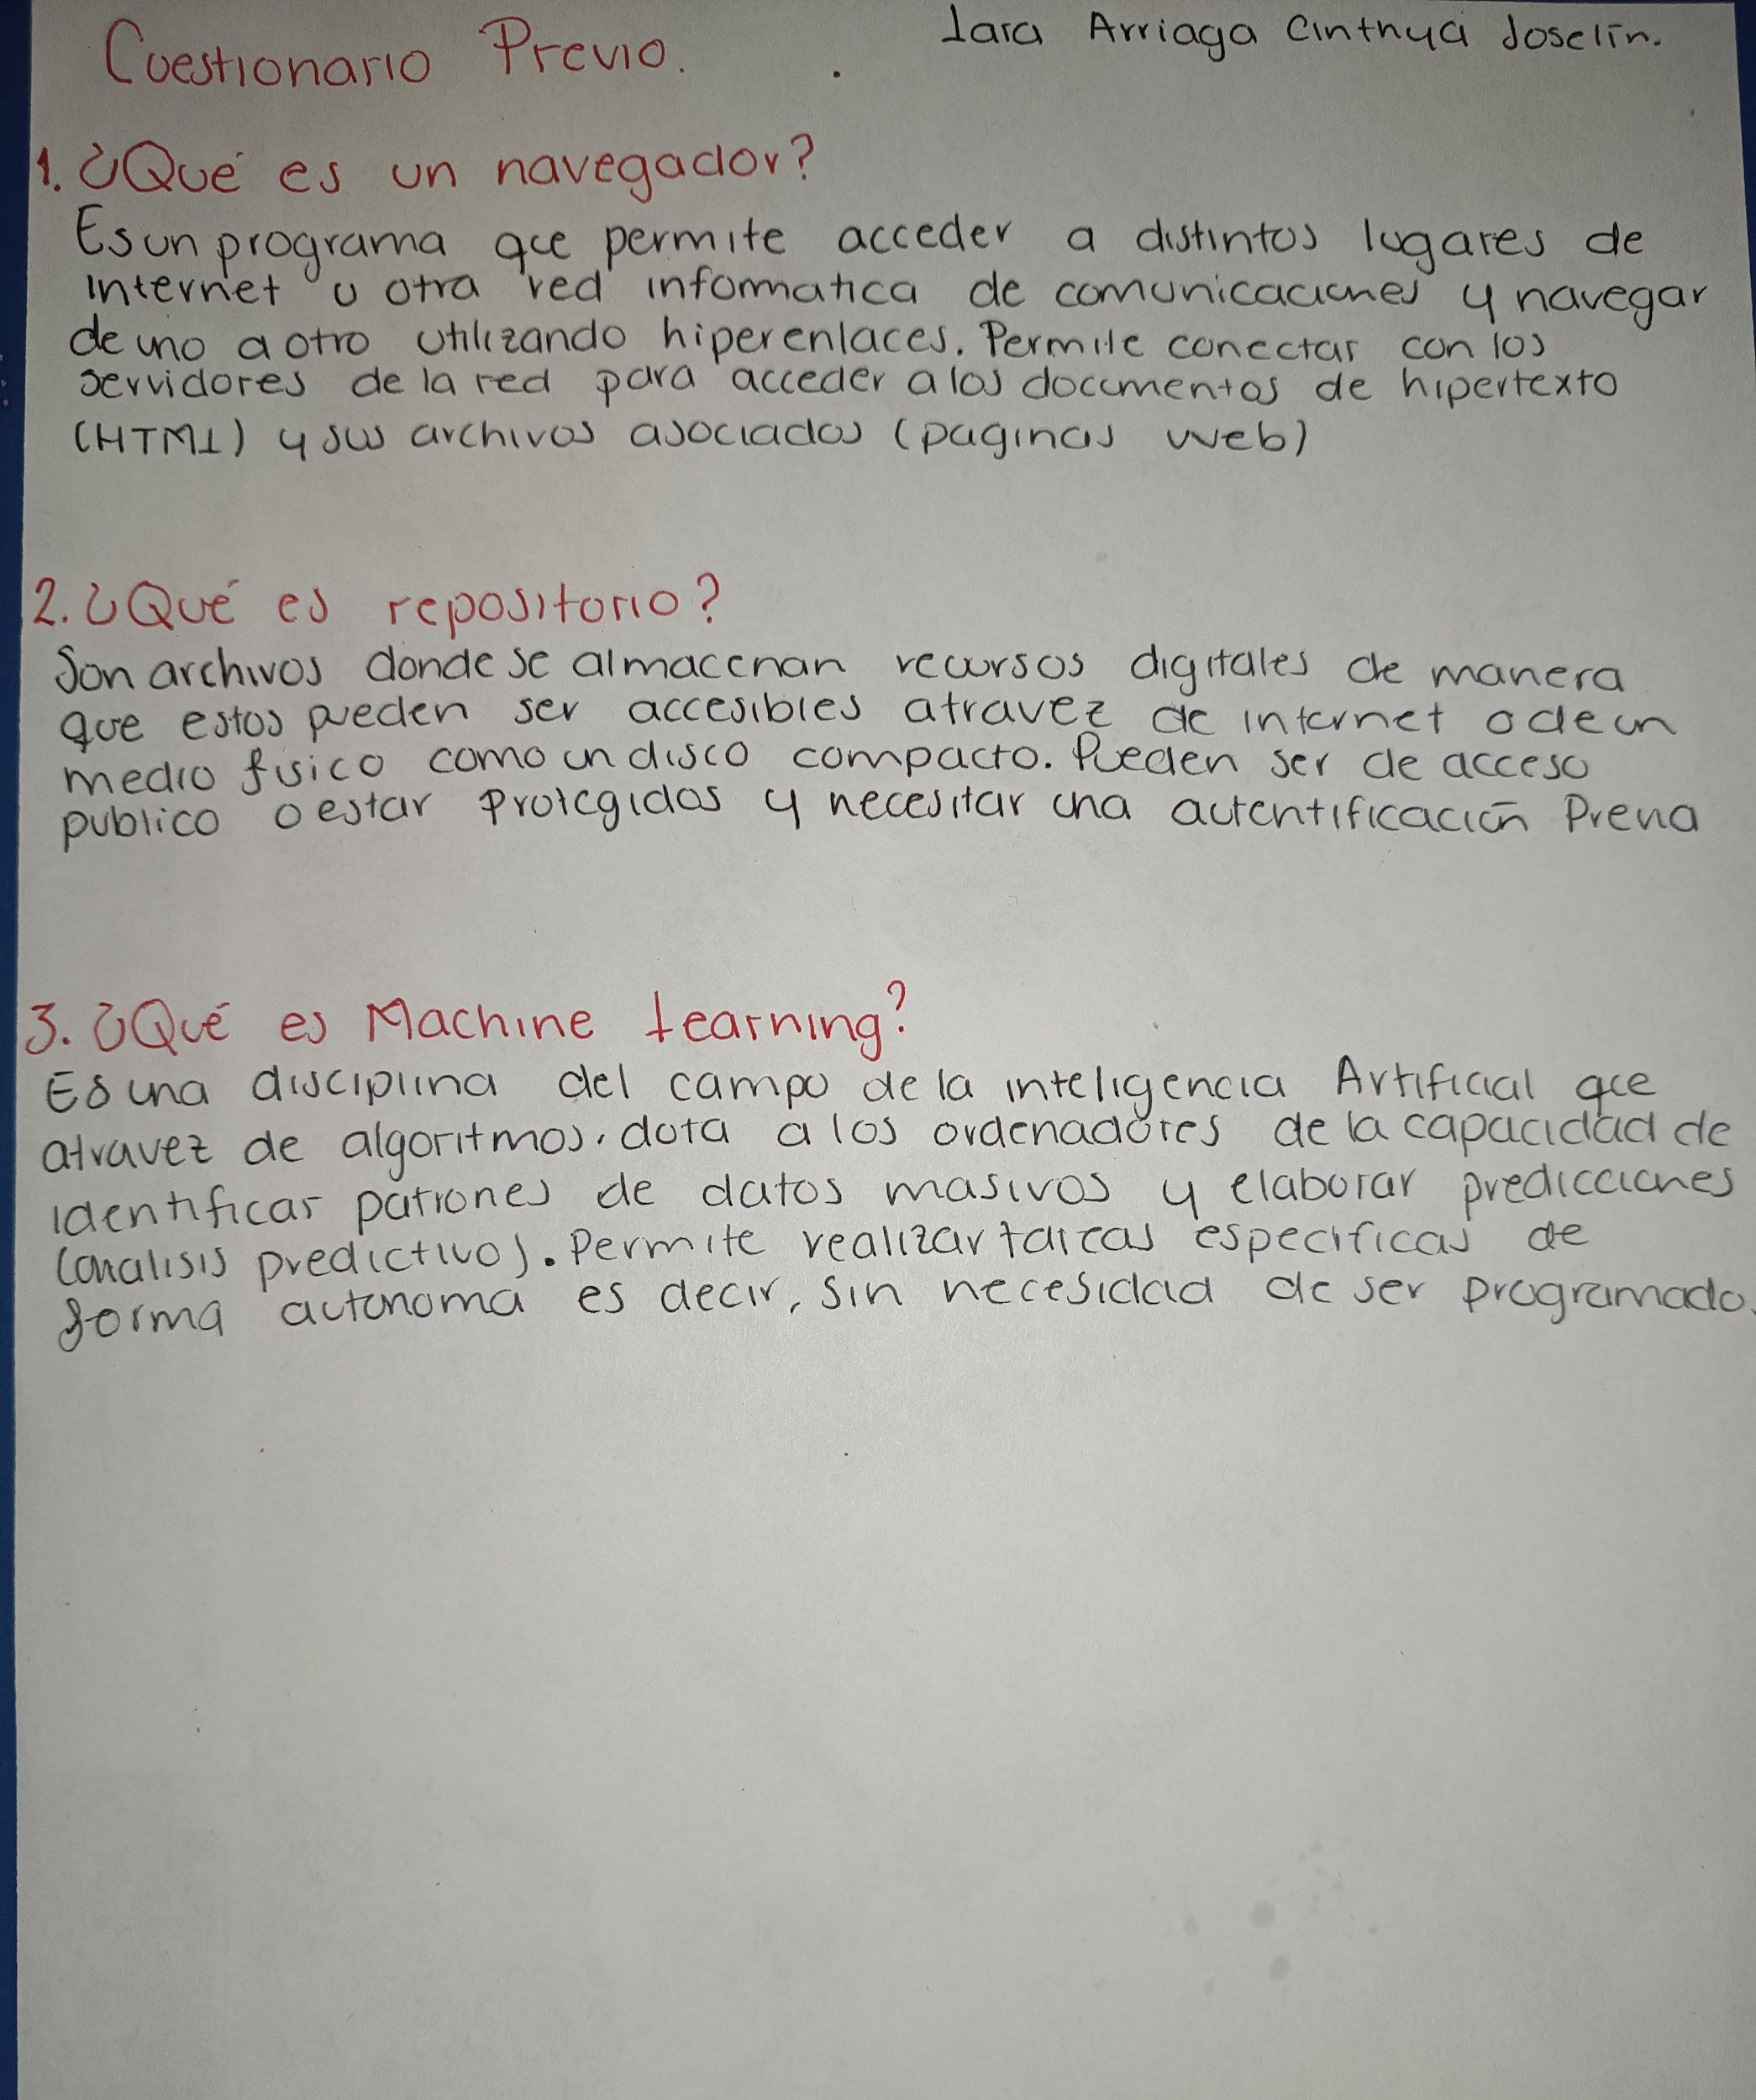 Cuestionario Previo.
Lara Arriaga Cinthya Joselin.
1. ¿Qué es un navegador?
Es un programa que permite acceder a distintos lugares de
internet u otra red informatica de comunicaciones y navegar
de uno a otro utilizando hiperenlaces. Permite conectar con los
servidores de la red para acceder a los documentos de hipertexto
(HTML) y sus archivos asociados (paginas web)
2. ¿Qué es repositorio?
Son archivos donde se almacenan recursos digitales de manera
que estos pueden ser accesibles atravez de internet o de un
medio fisico como un disco compacto. Pueden ser de acceso
publico o estar protegidos y necesitar una autentificación Previa
3. ¿Qué es Machine Learning?
Es una disciplina del campo de la inteligencia Artificial que
atravez de algoritmos, dota a los ordenadores de la capacidad de
identificar patrones de datos masivos y elaborar predicciones
(analisis predictivo). Permite realizar tareas especificas de
forma autonoma es decir, sin necesidad de ser programado.